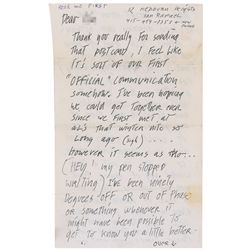 FIRST
12 HEPBURN HEIGHTS
SAN RAFAEL
415-
Dear
Thank you really for sending
that postcard, I feel like
it's sort of our first
"OFFICIAL" communication
somehow. I've been hoping
we could get together ever
since we first met at
AL'S that winter nite so
long ago (sigh)....
however it seems as tho...
(HEY! my pen stopped
waiting) I've been ninety
degrees off or out of phase
or something whenever it
might have been possible to
get to know you a little better.
over